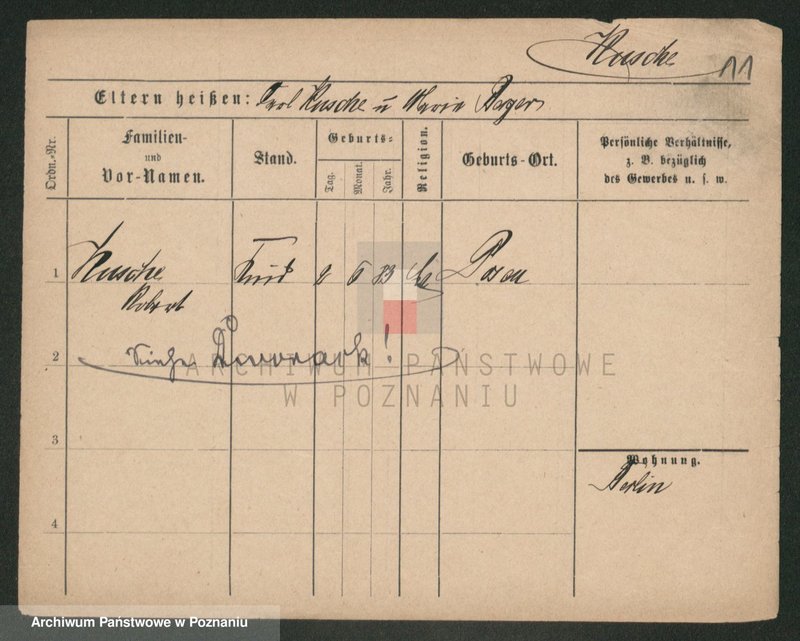 Kusche 11
Eltern heißen: Carl Kusche u Maria Beyer
Ordn.-Nr.
Familien-
und
Vor-Namen.
Stand.
Geburts-
Tag.
Monat.
Jahr.
Religion.
Geburts-Ort.
Persönliche Verhältnisse,
z. B. bezüglich
des Gewerbes u. s. w.
1 Kusche Kind 2 6 83 Posen
Robert
2 Siehe Dworack!
ARCHIWUM PAŃSTWOWE
W POZNANIU
3
Wohnung.
Berlin
4
Archiwum Państwowe w Poznaniu